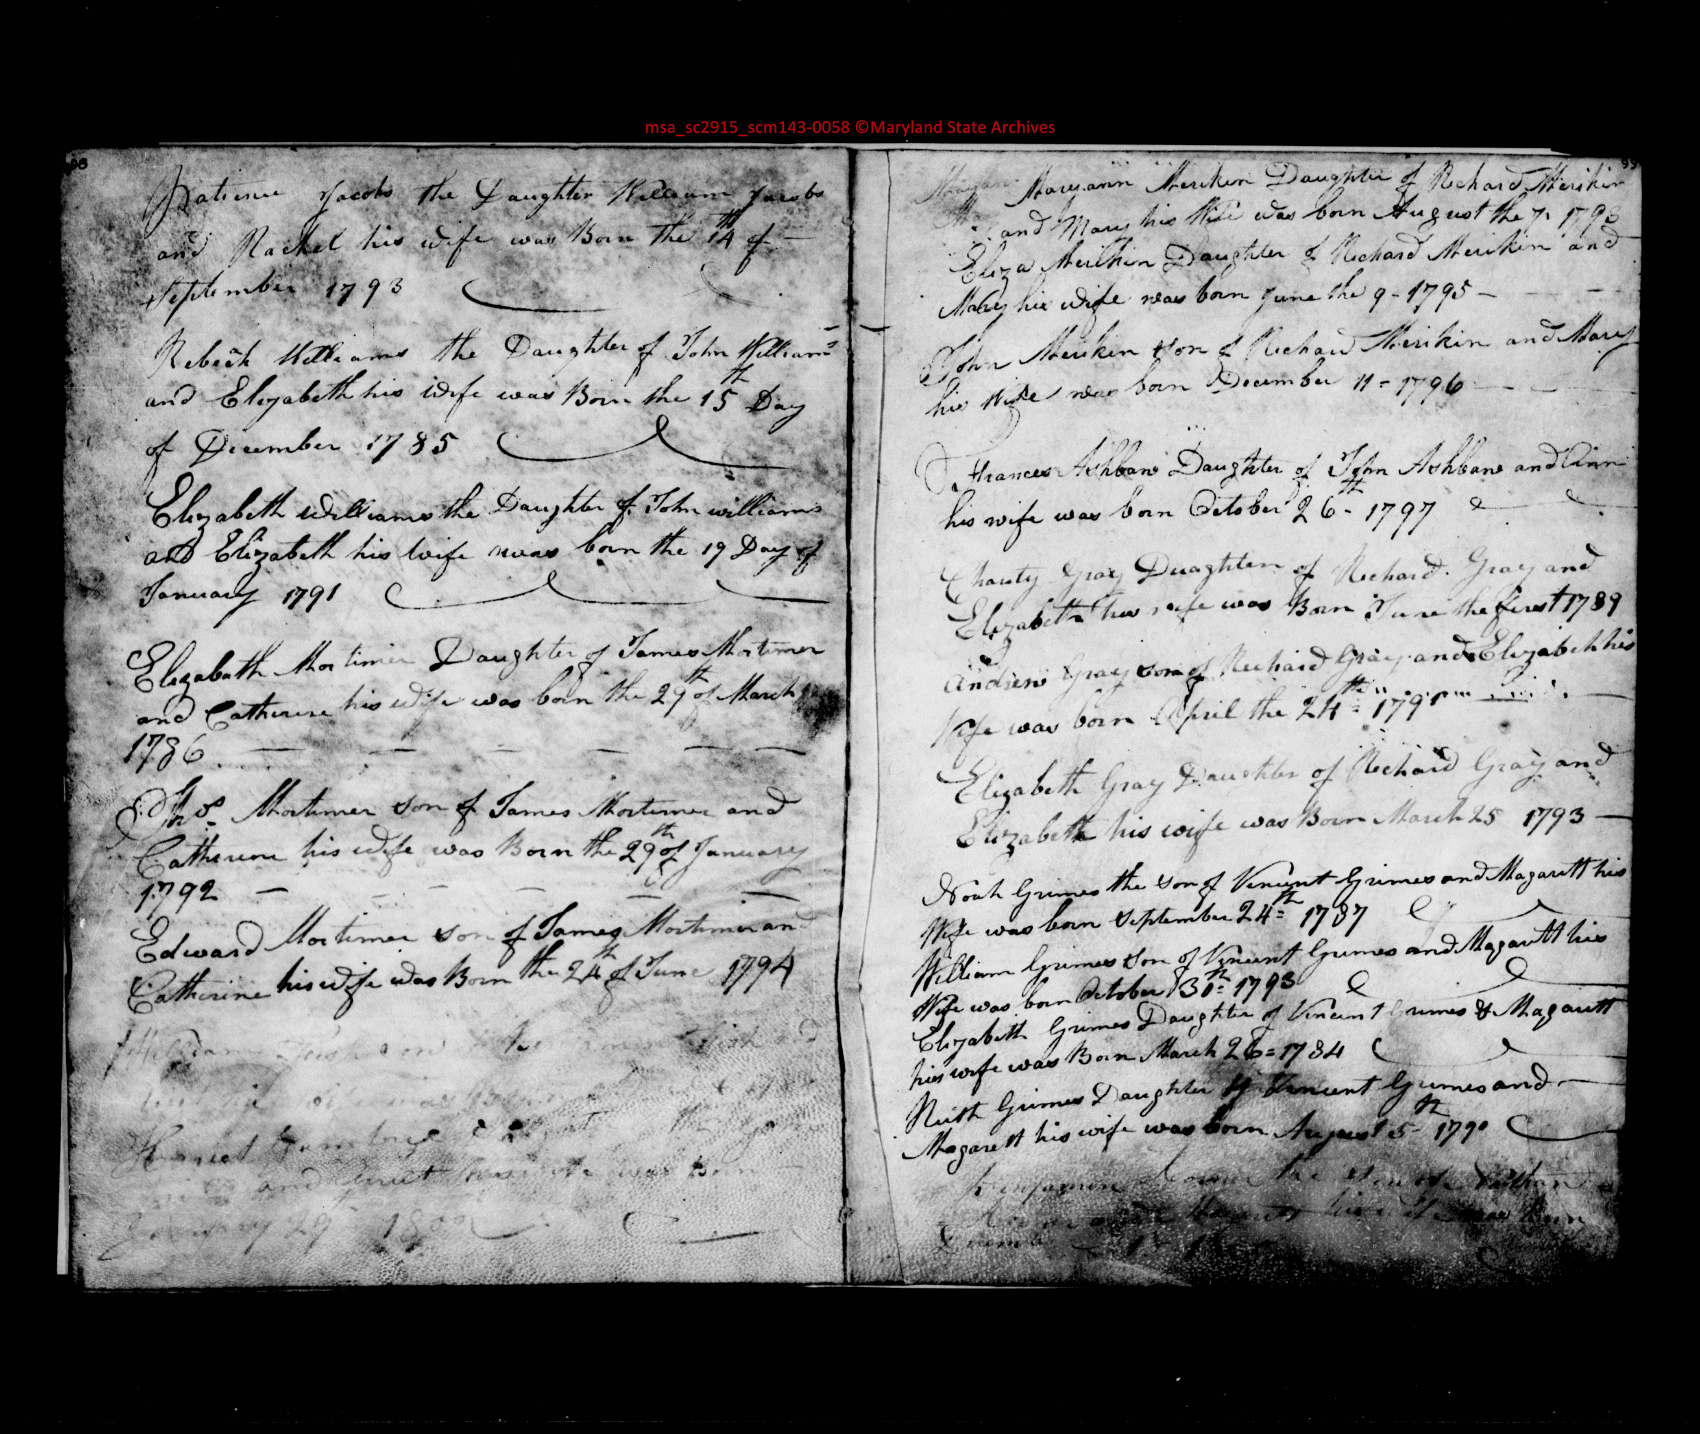 msa_sc2915_scm143-0058 ©Maryland State Archives
98
Patience Jacobs the Daughter William Jacobs
and Rachel his wife was Born the 14th of
September 1793
Rebeck Williams the Daughter of John Williams
and Elizabeth his wife was Born the 15th Day
of December 1785
Elizabeth Williams the Daughter of John williams
and Elizabeth his wife was born the 19 Day of
January 1791
Elizabath Mortimer Daughter of James Mortimer
and Catherine his wife was born the 29th of March
1786
Thos. Mortimer son of James Mortimer and
Catherine his wife was Born the 29th of January
1792
Edward Mortimer son of James Mortimer and
Catherine his wife was Born the 24th of June 1794
William
wife was Born
Harriet
and his wife was Born
January 29th 1802
99
Maryann Merikin Daughter of Richard Merikin
and Mary his Wife was born August the 7. 1793
Eliza Merikin Daughter of Richard Merikin and
Mary his wife was born June the 9 - 1795 -
John Merikin son of Richard Merikin and Mary
his Wife was born December 11 = 1796
Frances Ashbaw Daughter of John Ashbaw and Ann
his wife was born October 26th - 1797
Charity Gray Duaghter of Richard Gray and
Elizabeth his wife was Born June the first 1789
Andrew Gray son of Richard Gray and Elizabeth his
Wife was born April the 24th 1791
Elizabeth Gray Daughter of Richard Gray and
Elizabeth his wife was Born March 25 1793
Noah Grimes the son of Vincent Grimes and Magarett his
Wife was born September 24th = 1787
William Grimes son of Vincent Grimes and Magarett his
Wife was born October 31th 1793
Elizabeth Grimes Daughter of Vincent Grimes & Magarett
his wife was Born March 26 = 1784
Ruth Grimes Daughter of Vincent Grimes and
Magarett his wife was born August 5th 1790
Benjamin the son of
his wife was Born